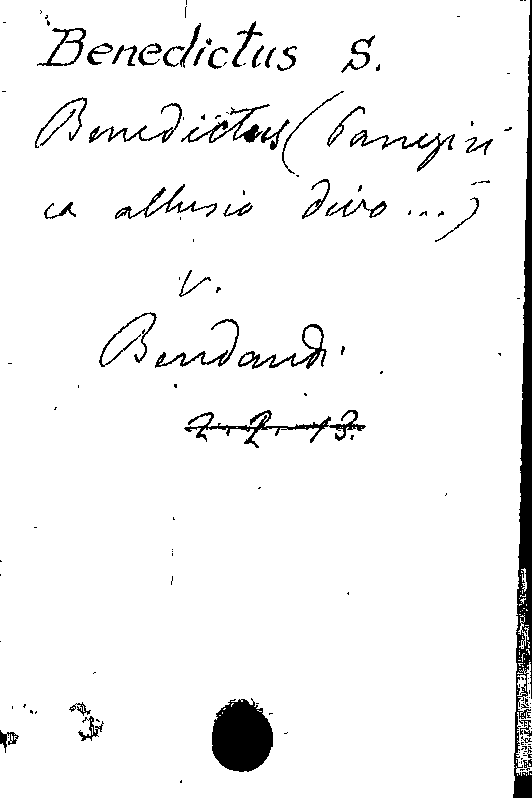 Benedictus S.
Benedictus (Panegiri-
ca allusio divo ...)
v.
Bendandi.
2. 2. 13.
3